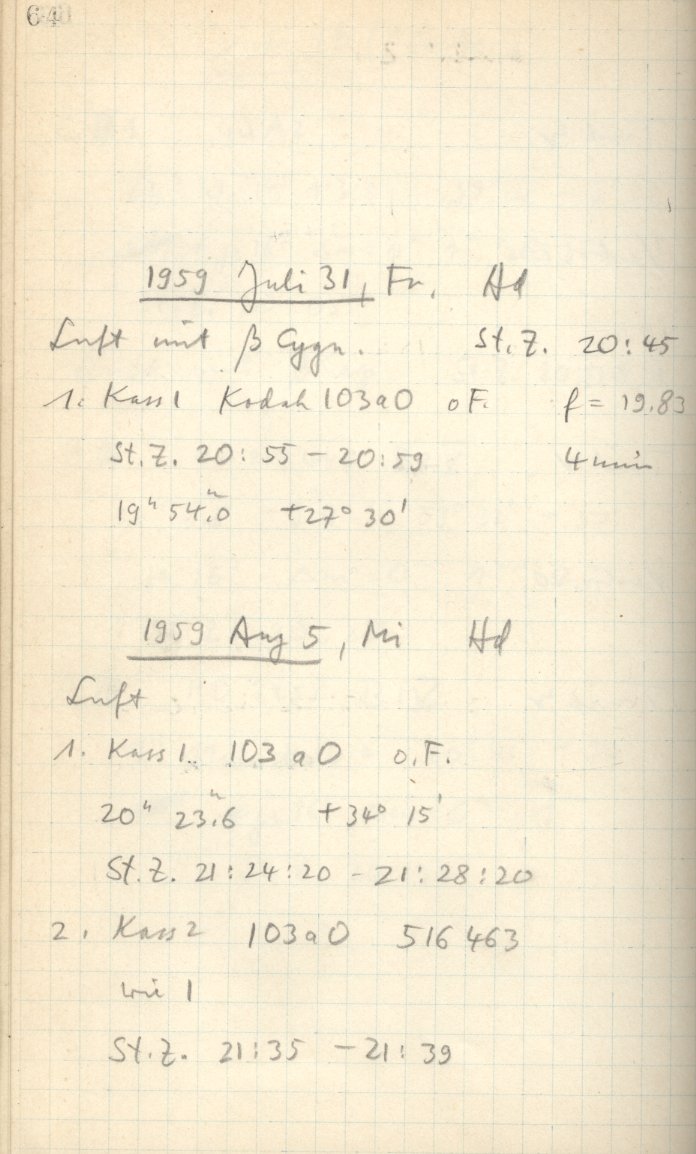 64
1959 Juli 31, Fr. Hd
Luft mit β Cygn. St.Z. 20:45
1. Kass 1 Kodak 103aO o.F. f = 19.83
St.Z. 20:55 – 20:59 4 min
19ʰ 54.ᵐ0 +27° 30'
1959 Aug 5, Mi Hd
Luft
1. Kass 1. 103aO o.F.
20ʰ 23.ᵐ6 +34° 15'
St.Z. 21:24:20 – 21:28:20
2. Kass 2 103aO 516 463
wie 1
St.Z. 21:35 – 21:39